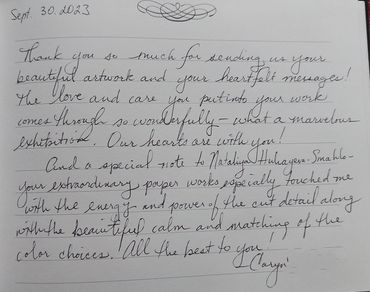 Sept. 30. 2023
Thank you so much for sending us your
beautiful artwork and your heartfelt messages!
The love and care you put into your work
comes through so wonderfully – what a marvelous
exhibition. Our hearts are with you!
And a special note to Nataliya
your extraordinary paper works especially touched me
with the energy and power of the cut detail along
with the beautiful calm and matching of the
color choices. All the best to you!